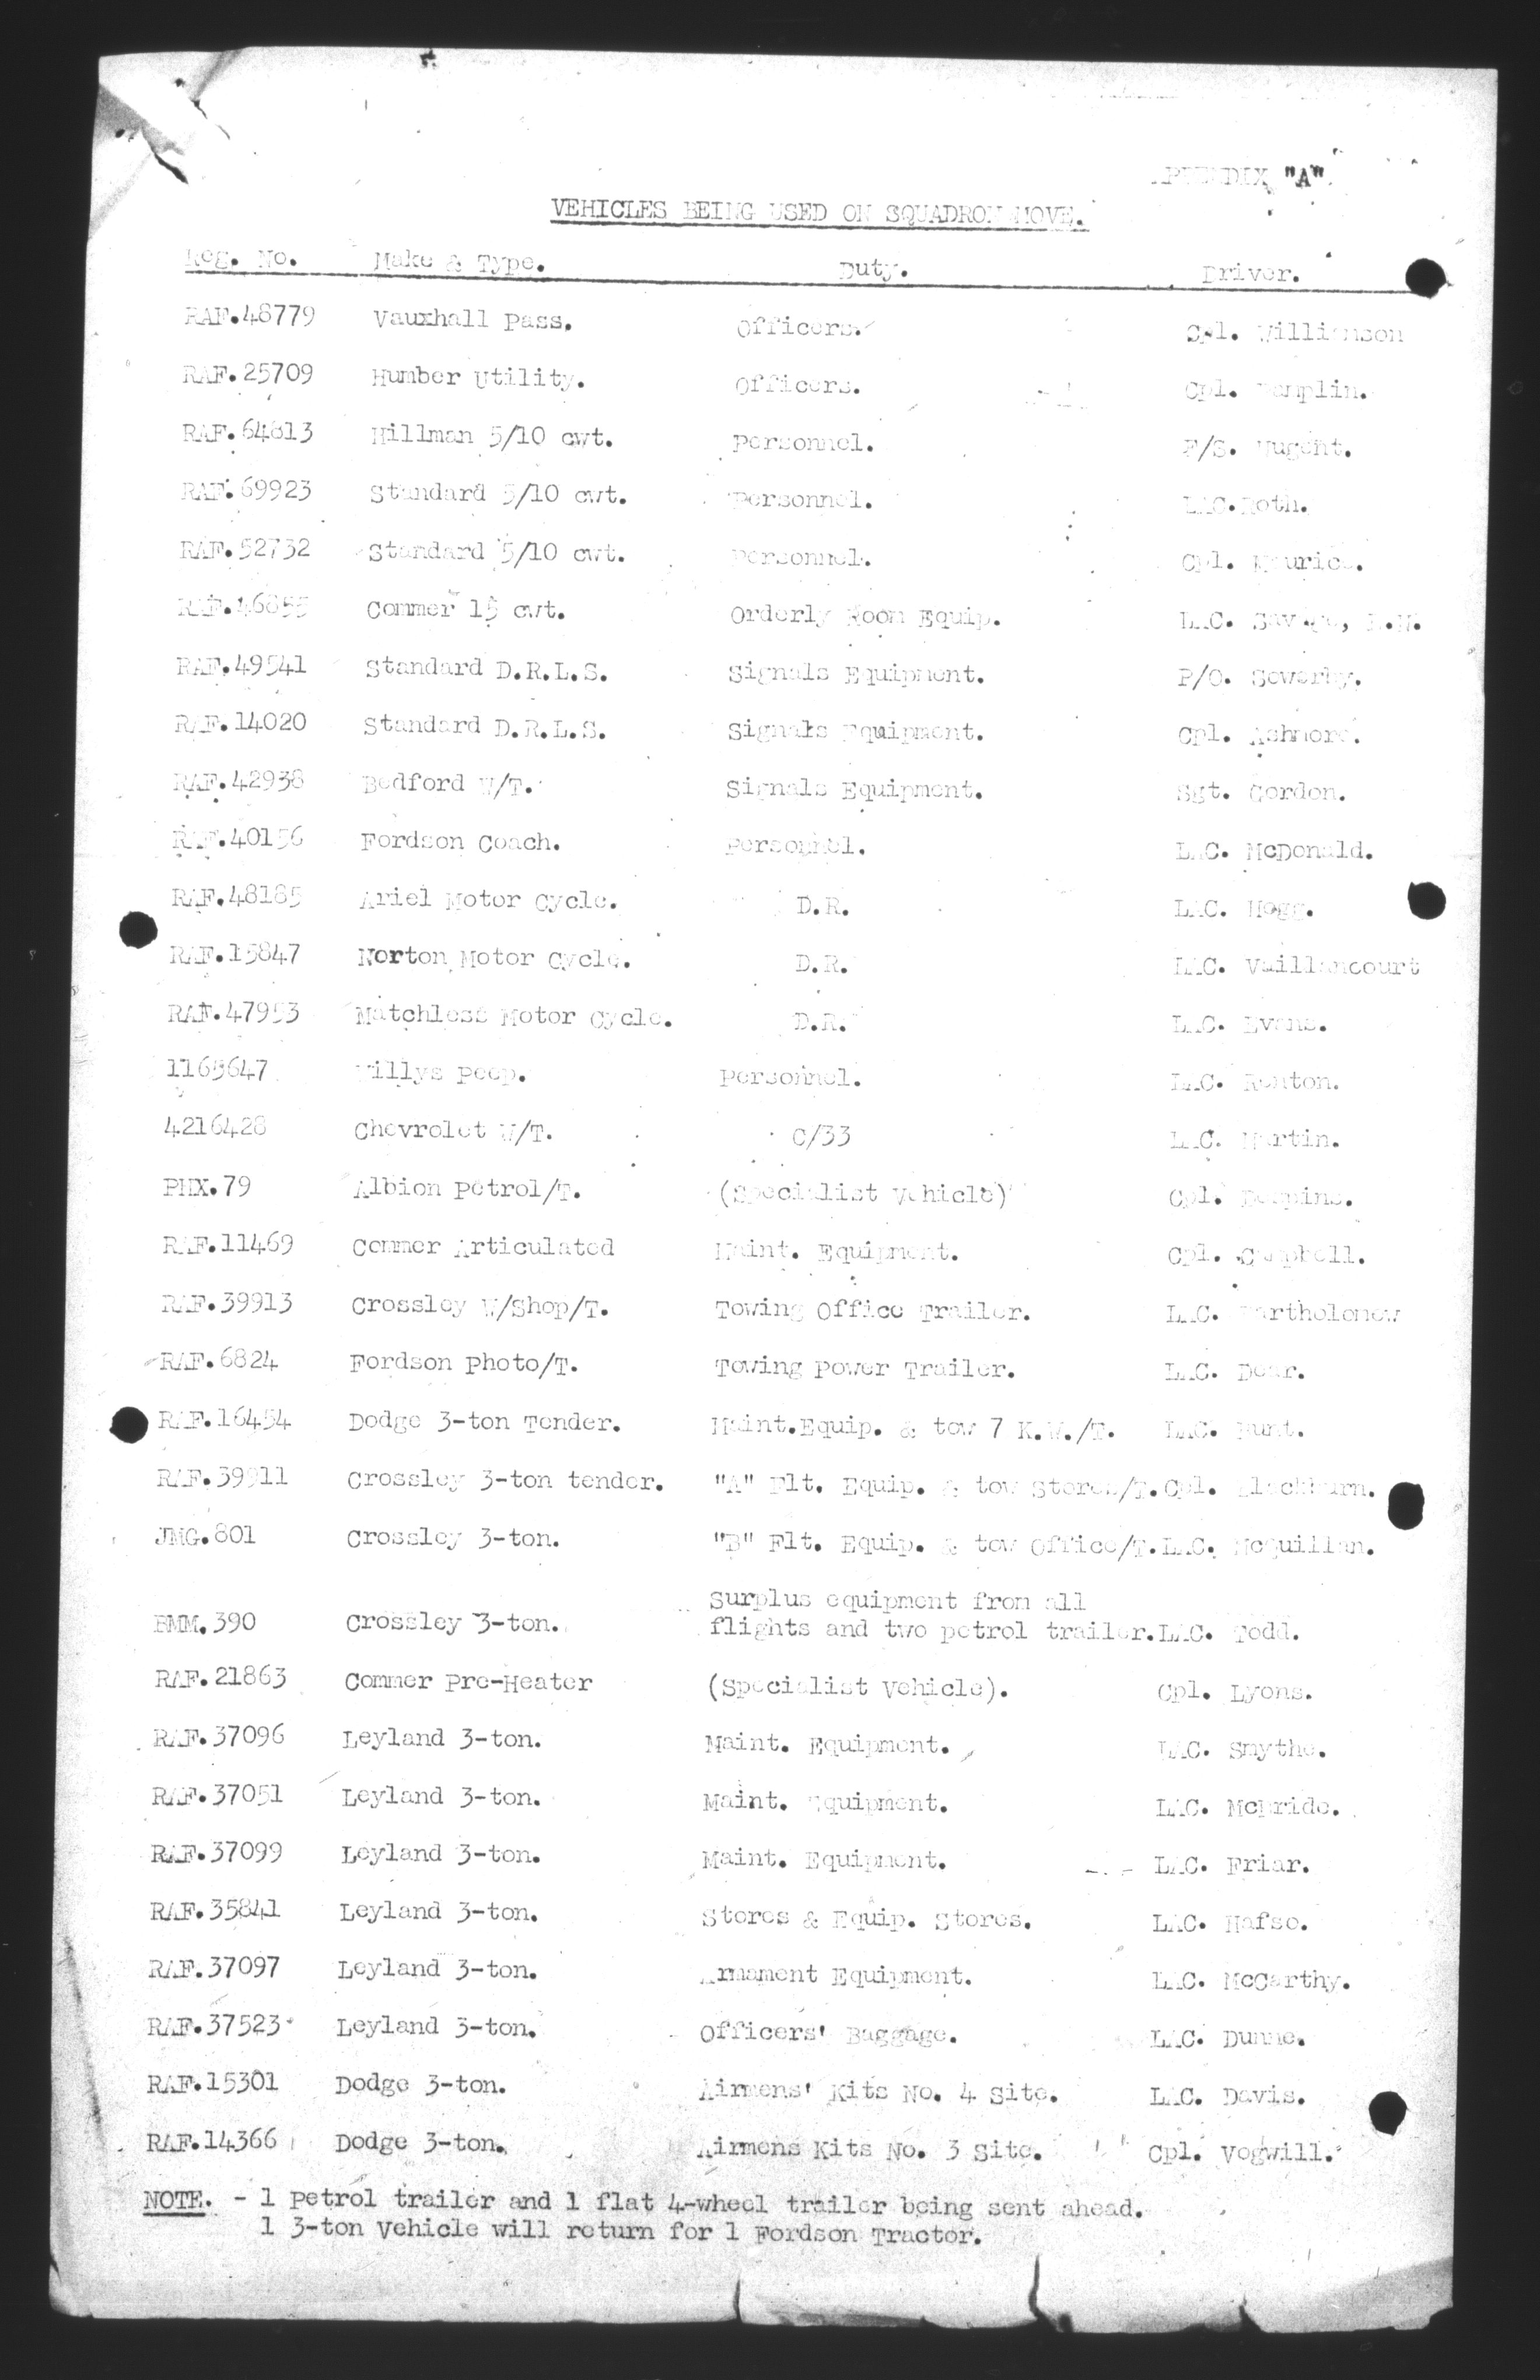 APPENDIX "A"
VEHICLES BEING USED ON SQUADRON MOVE.
Reg. No. Make & Type. Duty. Driver.
RAF.48779 Vauxhall Pass. Officers. Cpl. Williamson
RAF.25709 Humber Utility. Officers. Cpl.
RAF.64813 Hillman 5/10 cwt. Personnel. F/S. Nugent.
RAF.69923 Standard 5/10 cwt. Personnel. LAC. Roth.
RAF.52732 Standard 5/10 cwt. Personnel. Cpl. Maurice.
RAF.46855 Commer 15 cwt. Orderly Room Equip. LAC. Savage,
RAF.49541 Standard D.R.L.S. Signals Equipment. P/O. Sowerby.
RAF.14020 Standard D.R.L.S. Signals Equipment. Cpl. Ashmore.
RAF.42938 Bedford W/T. Signals Equipment. Sgt. Gordon.
RAF.40156 Fordson Coach. Personnel. LAC. McDonald.
RAF.48185 Ariel Motor Cycle. D.R. LAC. Hogg.
RAF.15847 Norton Motor Cycle. D.R. LAC. Vaillancourt
RAF.47953 Matchless Motor Cycle. D.R. LAC. Evans.
1165647 Willys Peep. Personnel. LAC. Renton.
4216428 Chevrolet W/T. C/33 LAC. Martin.
PHX.79 Albion Petrol/T. (Specialist Vehicle) Cpl.
RAF.11469 Commer Articulated Maint. Equipment. Cpl. Campbell.
RAF.39913 Crossley W/Shop/T. Towing Office Trailer. LAC. Bartholomew
RAF.6824 Fordson Photo/T. Towing Power Trailer. LAC. Dear.
RAF.16454 Dodge 3-ton Tender. Maint.Equip. & tow 7 K.W./T. LAC.
RAF.39911 Crossley 3-ton tender. "A" Flt. Equip. & tow Stores/T. Cpl. Blackburn.
JMG.801 Crossley 3-ton. "B" Flt. Equip. & tow Office/T. LAC. McQuillan.
Surplus equipment from all
BMM.390 Crossley 3-ton. flights and two petrol trailer. LAC. Todd.
RAF.21863 Commer Pre-Heater (Specialist Vehicle). Cpl. Lyons.
RAF.37096 Leyland 3-ton. Maint. Equipment. LAC. Smythe.
RAF.37051 Leyland 3-ton. Maint. Equipment. LAC. McBride.
RAF.37099 Leyland 3-ton. Maint. Equipment. LAC. Friar.
RAF.35841 Leyland 3-ton. Stores & Equip. Stores. LAC. Hafso.
RAF.37097 Leyland 3-ton. Armament Equipment. LAC. McCarthy.
RAF.37523 Leyland 3-ton. Officers' Baggage. LAC. Dunne.
RAF.15301 Dodge 3-ton. Airmens' Kits No. 4 Site. LAC. Davis.
RAF.14366 Dodge 3-ton. Airmens Kits No. 3 Site. Cpl. Vogwill.
NOTE. - 1 Petrol trailer and 1 flat 4-wheel trailer being sent ahead.
1 3-ton Vehicle will return for 1 Fordson Tractor.